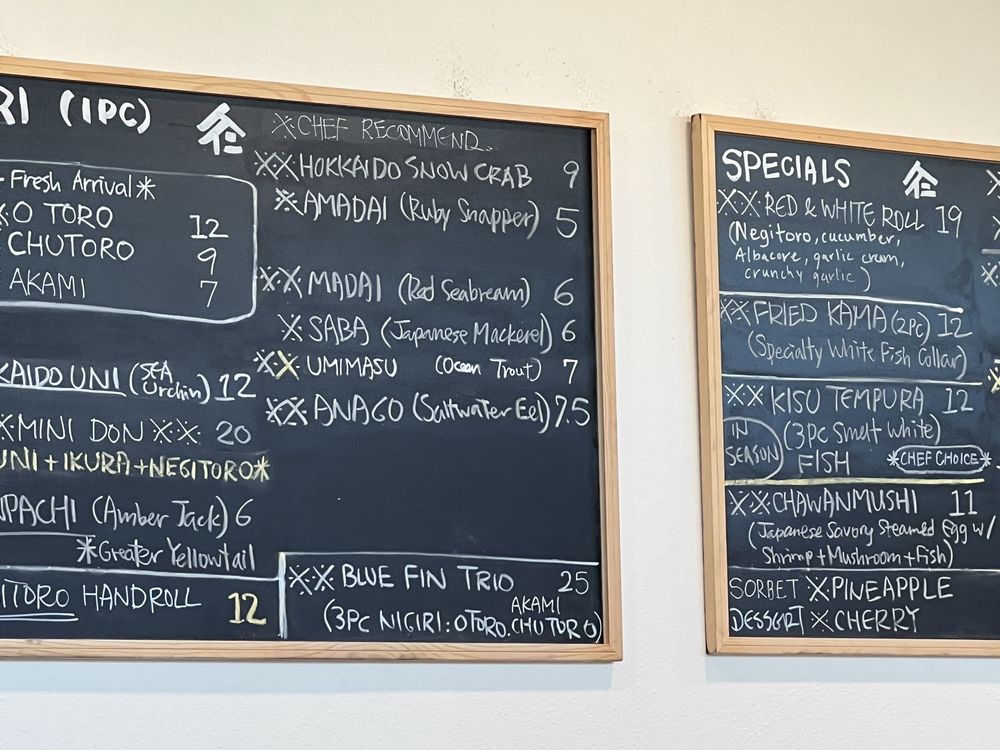 RI (1PC)
Fresh Arrival*
O TORO 12
CHUTORO 9
AKAMI 7
KAIDO UNI (SEA Urchin) 12
※MINI DON ※※ 20
UNI + IKURA + NEGITORO*
PACHI (Amber Jack) 6
*Greater Yellowtail
ITORO HANDROLL 12
※CHEF RECOMMEND
※※HOKKAIDO SNOW CRAB 9
※AMADAI (Ruby Snapper) 5
※※ MADAI (Red Seabream) 6
※ SABA (Japanese Mackerel) 6
※※ UMIMASU (Ocean Trout) 7
※※ ANAGO (Saltwater Eel) 7.5
※※ BLUE FIN TRIO 25
(3PC NIGIRI: OTORO. AKAMI CHUTORO)
SPECIALS
※※ RED & WHITE ROLL 19
(Negitoro, cucumber,
Albacore, garlic cream,
crunchy garlic)
※※ FRIED KAMA (2PC) 12
(Specialty White Fish Collar)
※※ KISU TEMPURA 12
IN SEASON
(3PC Smelt White)
FISH *CHEF CHOICE*
※※CHAWANMUSHI 11
(Japanese Savory Steamed Egg w/
Shrimp+Mushroom+Fish)
SORBET ※PINEAPPLE
DESSERT ※CHERRY